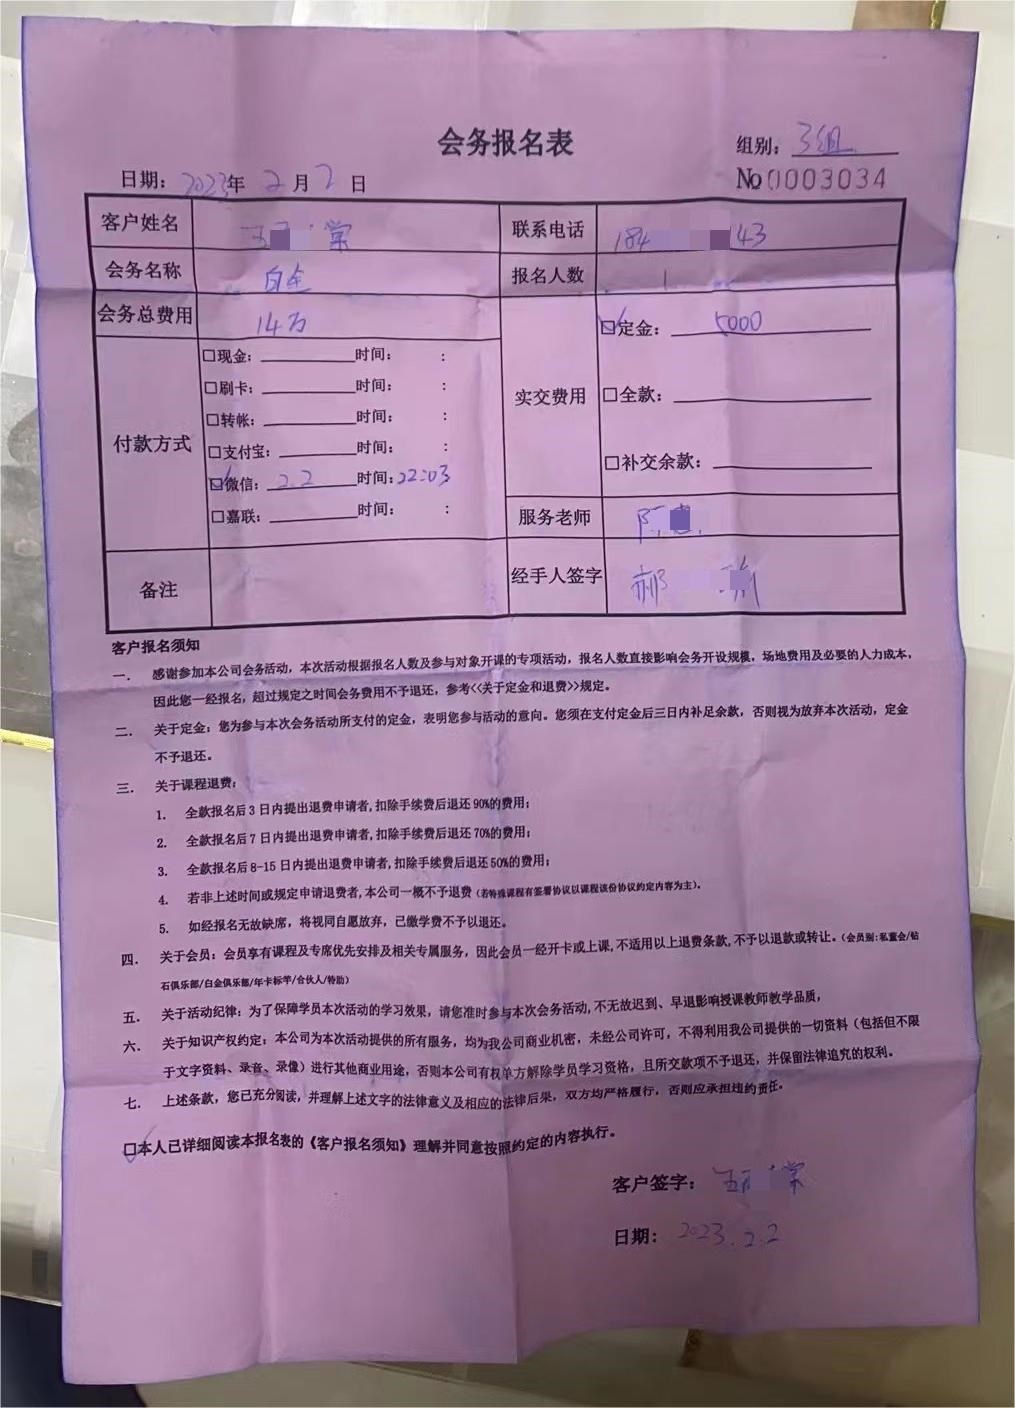 会务报名表
组别：3组
日期：2023年 2月2日
No 0003034
客户姓名 王 棠 联系电话 184 143
会务名称 白金 报名人数 1
会务总费用 14万
付款方式
□现金： 时间： ：
□刷卡： 时间： ：
□转帐： 时间： ：
□支付宝： 时间： ：
☑微信：2.2 时间：22:03
□嘉联： 时间： ：
实交费用
☑定金：5000
□全款：
□补交余款：
服务老师 陈
备注 经手人签字 郝
客户报名须知
一. 感谢参加本公司会务活动，本次活动根据报名人数及参与对象开课的专项活动，报名人数直接影响会务开设规模，场地费用及必要的人力成本，
因此您一经报名，超过规定之时间会务费用不予退还，参考<<关于定金和退费>>规定。
二. 关于定金：您为参与本次会务活动所支付的定金，表明您参与活动的意向。您须在支付定金后三日内补足余款，否则视为放弃本次活动，定金
不予退还。
三. 关于课程退费：
1. 全款报名后3日内提出退费申请者,扣除手续费后退还90%的费用；
2. 全款报名后7日内提出退费申请者,扣除手续费后退还70%的费用；
3. 全款报名后8-15日内提出退费申请者,扣除手续费后退还50%的费用；
4. 若非上述时间或规定申请退费者,本公司一概不予退费（若特殊课程有签署协议以课程该份协议约定内容为主）。
5. 如经报名无故缺席，将视同自愿放弃，已缴学费不予以退还。
四. 关于会员：会员享有课程及专席优先安排及相关专属服务，因此会员一经开卡或上课,不适用以上退费条款,不予以退款或转让。（会员别:私董会/钻
石俱乐部/白金俱乐部/年卡标竿/合伙人/特助）
五. 关于活动纪律：为了保障学员本次活动的学习效果，请您准时参与本次会务活动,不无故迟到、早退影响授课教师教学品质，
六. 关于知识产权约定：本公司为本次活动提供的所有服务，均为我公司商业机密，未经公司许可，不得利用我公司提供的一切资料（包括但不限
于文字资料、录音、录像）进行其他商业用途，否则本公司有权单方解除学员学习资格，且所交款项不予退还，并保留法律追究的权利。
七. 上述条款，您已充分阅读，并理解上述文字的法律意义及相应的法律后果，双方均严格履行，否则应承担违约责任。
☑本人已详细阅读本报名表的《客户报名须知》理解并同意按照约定的内容执行。
客户签字：王 棠
日期：2023.2.2